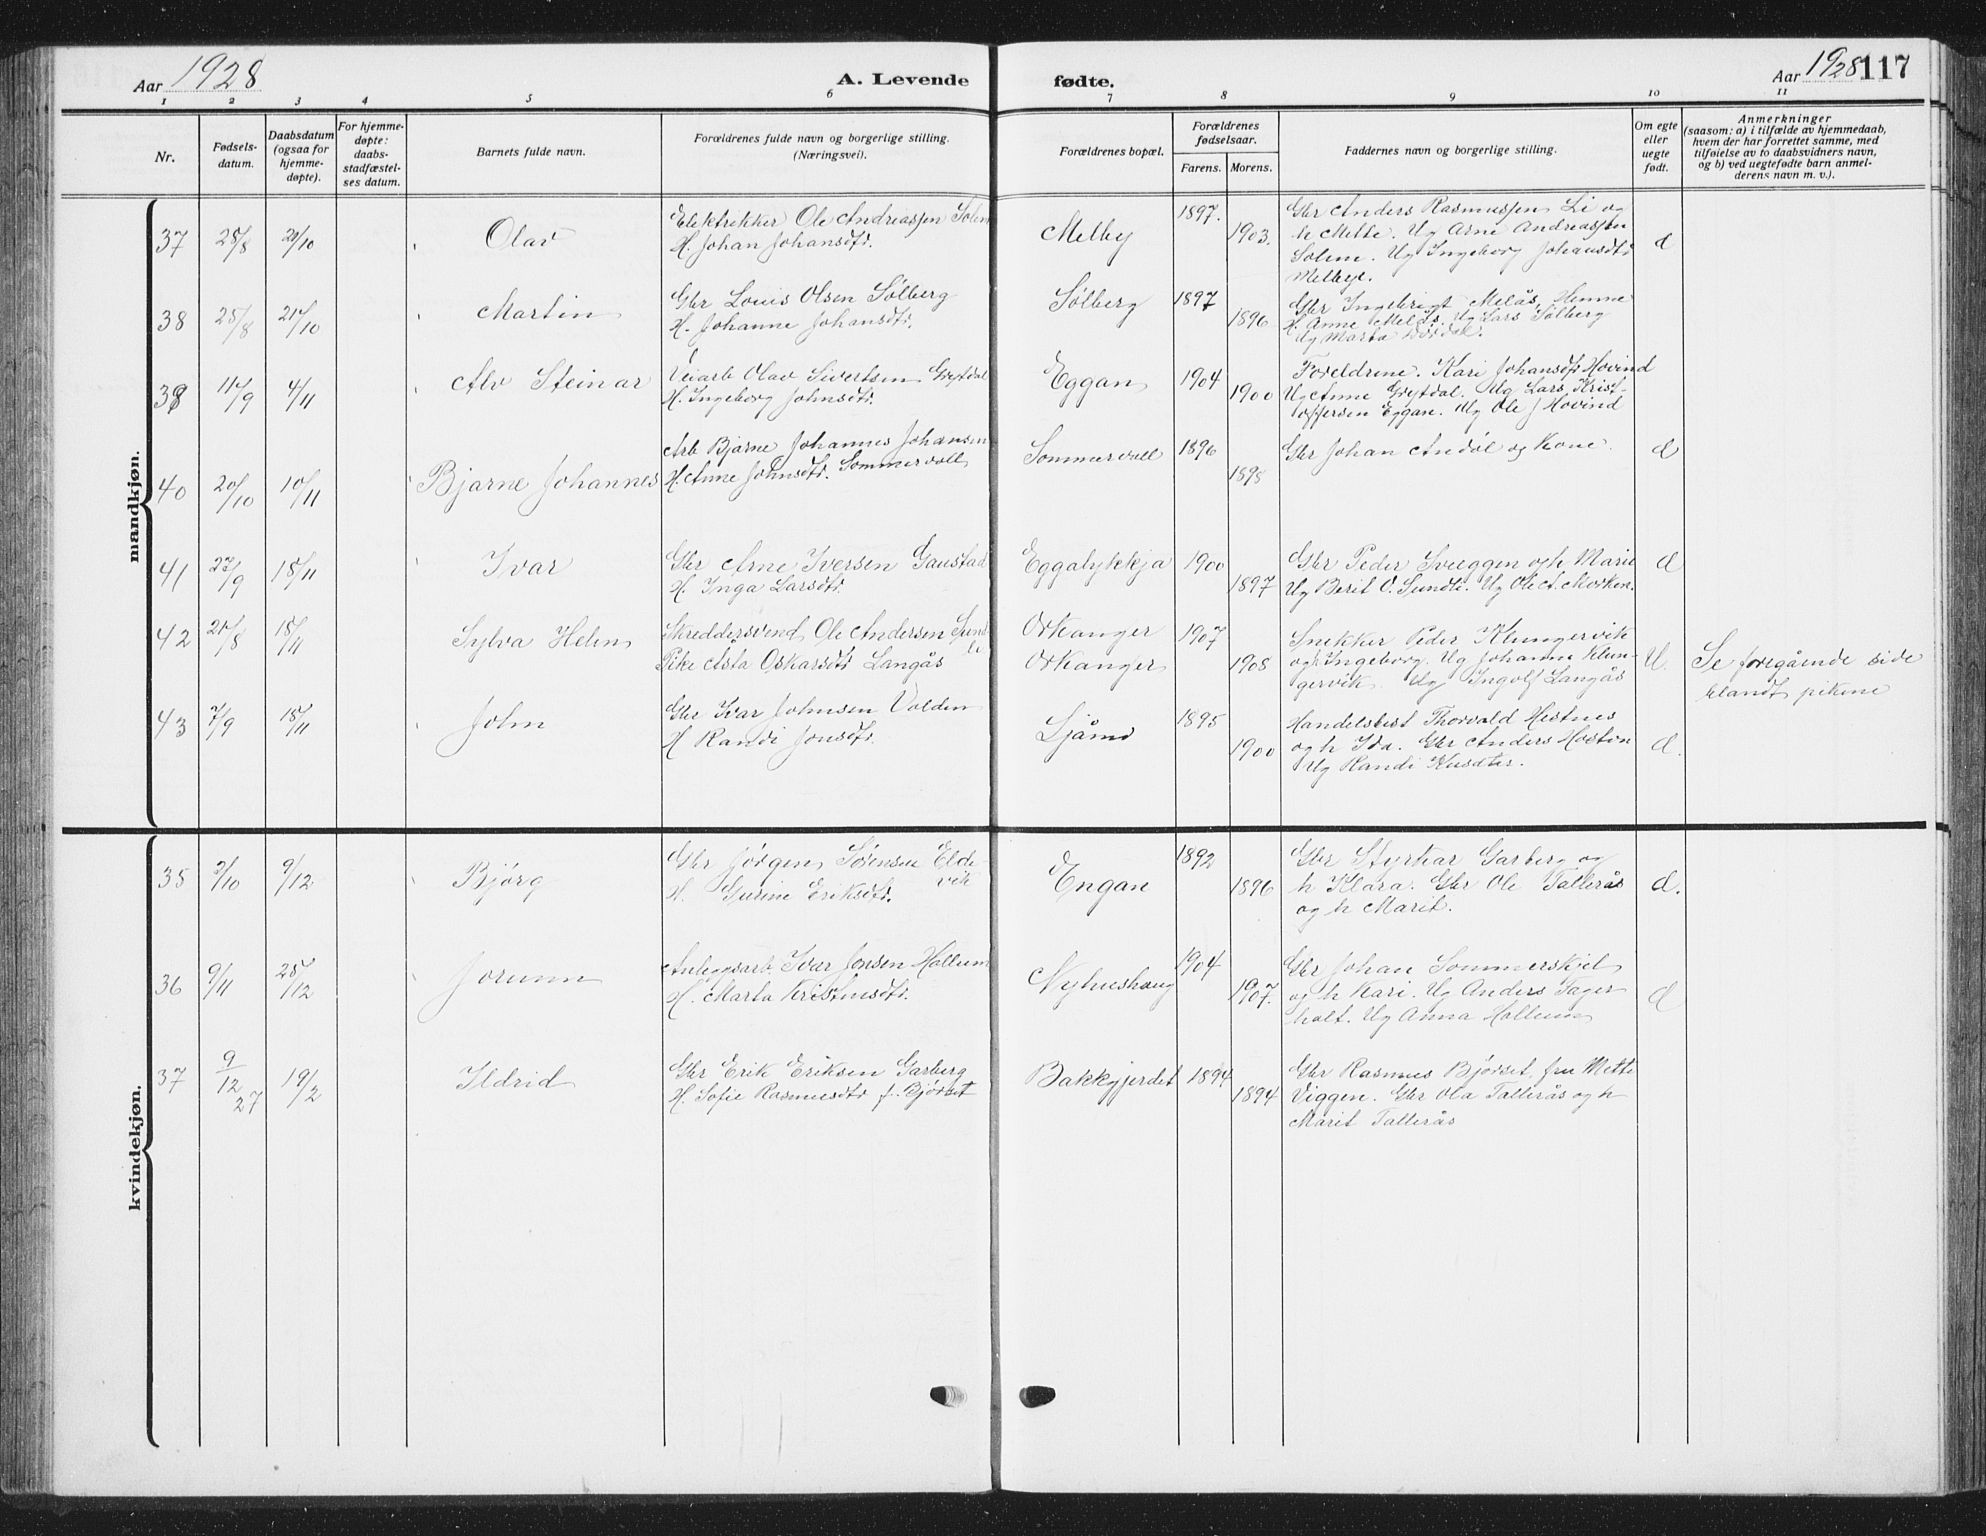 Aar 1928
A. Levende fødte.
Aar 1928 117
1 2 3 4 5 6 7 8 9 10 11
Nr.
Fødsels-
datum.
Daabsdatum
(ogsaa for
hjemme-
døpte).
For hjemme-
døpte:
daabs-
stadfæstel-
ses datum.
Barnets fulde navn.
Forældrenes fulde navn og borgerlige stilling.
(Næringsvei).
Forældrenes bopæl.
Forældrenes
fødselsaar.
Farens. Morens.
Faddernes navn og borgerlige stilling.
Om egte
eller
uegte
født.
Anmerkninger
(saasom: a) i tilfælde av hjemmedaab,
hvem der har forrettet samme, med
tilføielse av to daabsvidners navn,
og b) ved uegtefødte barn anmel-
derens navn m. v.).
mandkjøn.
37 25/8 21/10 Olav
Elektrikker Ole Andreassen Solem
H. Johan Johansdtr.
Melby 1897. 1903.
Gbr Anders Rasmussen Li og
h Mette. Ug Arne Andreassen
Solem. Ug Ingeborg Johansdtr
Melbye.
d
38 25/8 21/10 Martin
Gbr Louis Olsen Sølberg
H. Johanne Johansdtr.
Sølberg 1897 1896
Gbr Ingebrigt Melås, Hemne
H. Anne Melås. Ug Lars Sølberg
Ug Marta
39 14/9 4/11 Alv Steinar
Veiarb Olav Sivertsen Grytdal
H. Ingeborg Johnsdtr.
Eggan 1904 1900
Foreldrene. Kari Johansdtr Hovind
Ug Anne Grytdal. Ug Lars Krist-
offersen Eggan. Ug Ole J Hovind
40 20/10 10/11 Bjarne Johannes
Arb Bjarne Johannes Johansen
H. Anne Johnsdtr. Sommervoll
Sommervoll 1896 1898
Gbr Johan Andøl og Kone.
d
41 27/9 18/11 Ivar
Gbr Arne Iversen Gaustad
H. Inga Larsdtr.
Eggalykkja 1900 1897
Gbr Peder Sveggen og h Marie
Ug Berit O. Sundli. Ug Ole A. Morken.
d
42 21/8 18/11 Sylva Helen
Skreddersvend Ole Andersen Sund-
li
Pike Asta Oskarsdtr Langås
Orkanger 1907
Orkanger 1908
Snekker Peder Klungervik
og h Ingeborg. Ug Johanna Klun-
gervik. Ug Ingolf Langås
U.
Se foregående side
blandt pikene
43 7/9 18/11 John
Gbr Ivar Johnsen Volden
H Randi Jonsdtr.
Ljåmo 1895 1900
Handelsbest Thorvald Hestnes
og h Ida. Gbr Anders Hoston
Ug Randi
d.
kvindekjøn.
35 3/10 9/12 Bjørg
Gbr Jørgen Sørensen Elde-
vik
H. Gurine Eriksdtr.
Engan 1892 1896
Gbr Styrkar Garberg og
h Klara. Gbr Ole Tallerås
og h Marit.
d.
36 9/11 25/12 Jorunn
Anleggsarb. Ivar Jonsen Hollum
H. Marta Kristensdtr.
Nyhushaug 1904 1907.
Gbr Johan Sommerskjel
og h Kari. Ug Anders Fager
holt. Ug Anna Hollum
d
37 9/12 27 19/2 Ildrid
Gbr Erik Eriksen Garberg
H. Sofie Rasmusdtr f. Bjørset
Bakkgjerdet 1894 1894
Gbr Rasmus Bjørset, fru Mette
Viggen. Gbr Ola Tallerås og h
Marit Tallerås